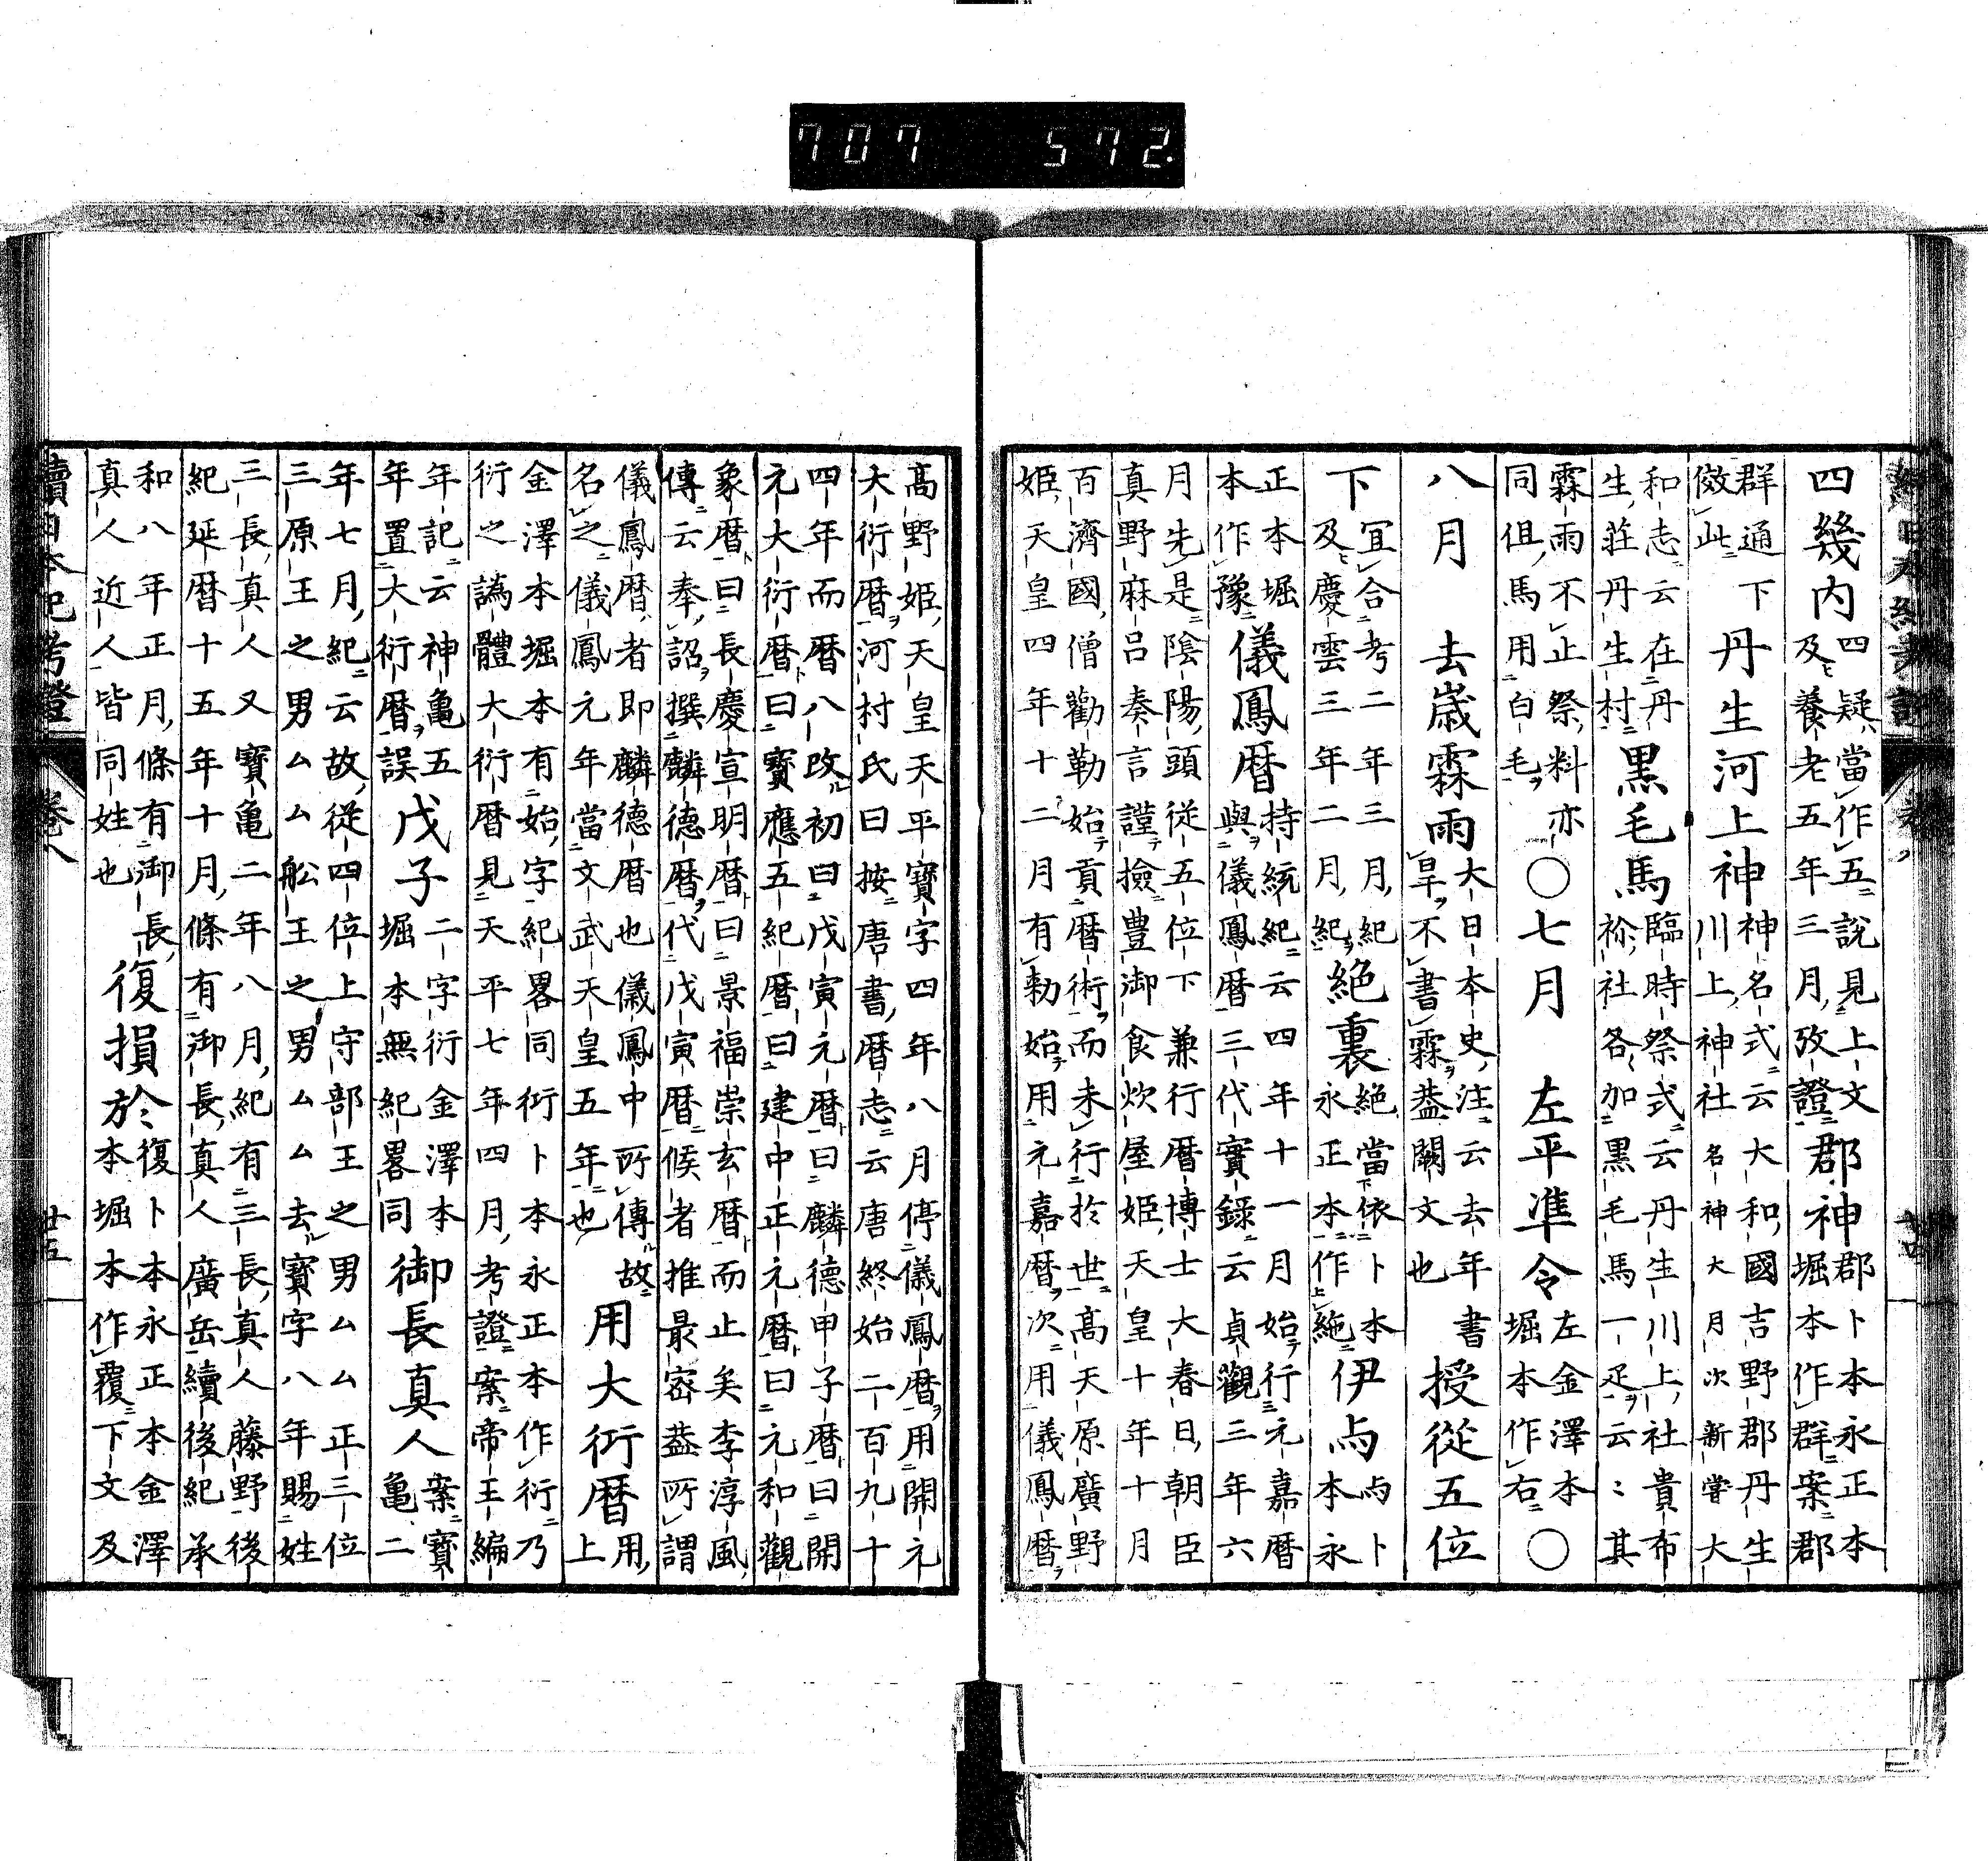 續日本紀考證
四幾内四疑當作五説見上文及養老五年三月攷證郡神郡卜本永正本堀本作群案郡
群通下傚此丹生河上神神名式云大和國吉野郡丹生川上神社名神大月次新嘗大
和志云在丹生莊丹生村黒毛馬臨時祭式云丹生川上社貴布祢社各加黒毛馬一疋云〻其
霖雨不止祭料亦同但馬用白毛〇七月　左平準令左金澤本堀本作右〇
八月　去歳霖雨大日本史注云去年書旱不書霖蓋闕文也授從五位
下宜合考二年三月紀及慶雲三年二月紀絶裏絶當依卜本永正本作絁伊与与卜本永
正本堀本作豫儀鳳暦持統紀云四年十一月始行元嘉暦與儀鳳暦三代實録云貞觀三年六
月先是陰陽頭從五位下兼行暦博士大春日朝臣
真野麻呂奏言謹撿豊御食炊屋姫天皇十年十月
百濟國僧勸勒始貢暦術而未行於世高天原廣野
姫天皇四年十二月有勅始用元嘉暦次用儀鳳暦
高野姫天皇天平寶字四年八月停儀鳳暦用開元
大衍暦河村氏曰按唐書暦志云唐終始二百九十
四年而暦八改初曰戊寅元暦曰麟德甲子暦曰開
元大衍暦曰寶應五紀暦曰建中正元暦曰元和觀
象暦曰長慶宣明暦曰景福崇玄暦而止矣李淳風
傳云奉詔撰麟德暦代戊寅暦候者推最密蓋所謂
儀鳳暦者即麟德暦也儀鳳中所傳故名之儀鳳元年當文武天皇五年也用大衍暦用上
金澤本堀本有始字紀畧同衍卜本永正本作衍乃
衍之譌體大衍暦見天平七年四月考證案帝王編
年記云神亀五年置大衍暦誤戊子二字衍金澤本堀本無紀畧同御長真人案寶亀二
年七月紀云故從四位上守部王之男ムム正三位
三原王之男ムム舩王之男ムム去寶字八年賜姓
三長真人又寶亀二年八月紀有三長真人藤野後
紀延暦十五年十月條有御長真人廣岳續後紀承
和八年正月條有御長真人近人皆同姓也復損於復卜本永正本金澤本堀本作覆下文及
續日本紀考證　卷八　廿五